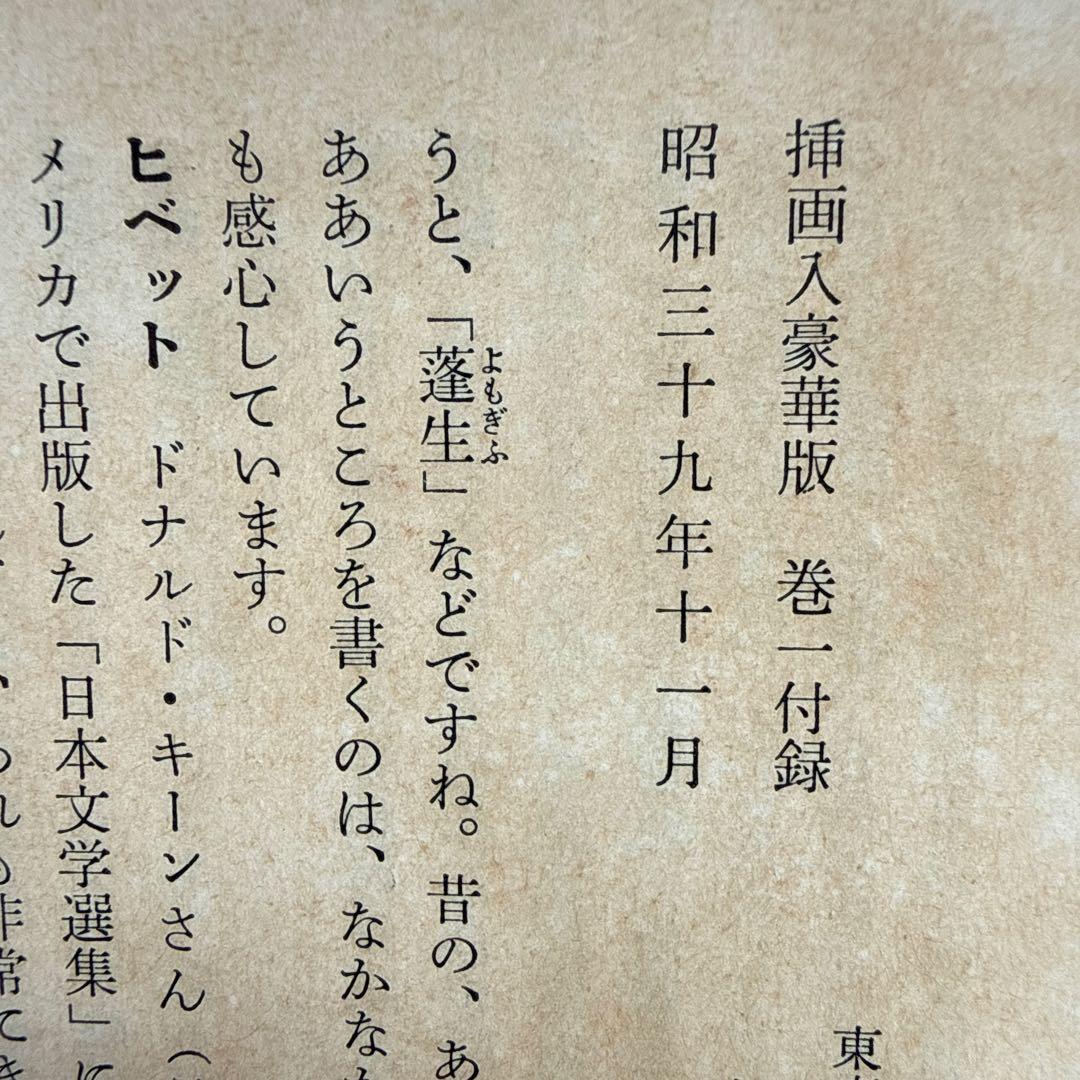 挿画入豪華版　巻一付録
東
昭和三十九年十一月
うと、「蓬生」などですね。昔の、あ
よもぎふ
ああいうところを書くのは、なかな
も感心しています。
ヒベット　ドナルド・キーンさん（
メリカで出版した「日本文学選集」に